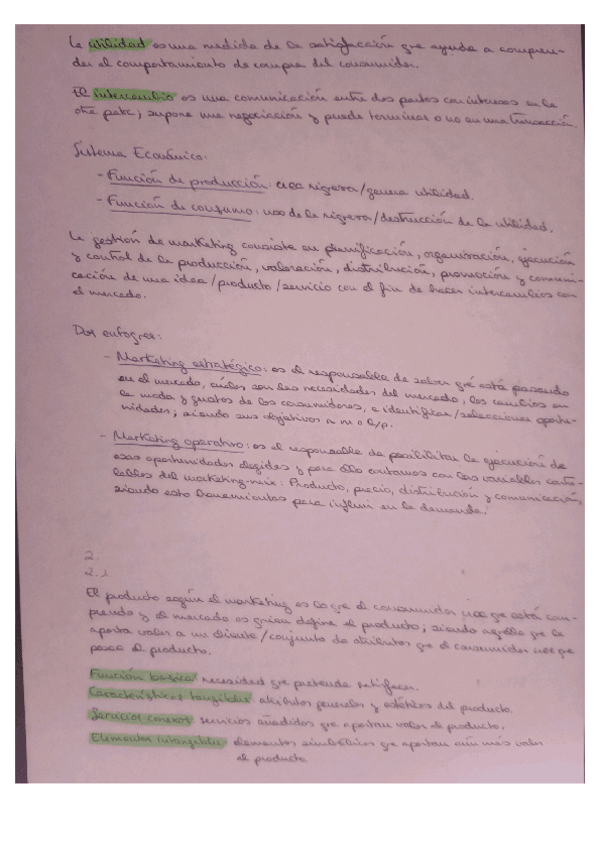 La utilidad es una medida de la satisfacción que ayuda a compren-
der el comportamiento de compra del consumidor.
El intercambio es una comunicación entre dos partes con interés en la
otra parte; supone una negociación y puede terminar o no en una transacción.
Sistema Económico:
- Función de producción: crea riqueza/genera utilidad.
- Función de consumo: uso de la riqueza/destrucción de la utilidad.
La gestión de marketing consiste en planificación, organización, ejecución
y control de la producción, valoración, distribución, promoción y comuni-
cación de una idea/producto/servicio con el fin de hacer intercambios con
el mercado.
Dos enfoques:
- Marketing estratégico: es el responsable de saber qué está pasando
en el mercado, cuáles son las necesidades del mercado, los cambios en
la moda y gustos de los consumidores, e identificar/seleccionar oportu-
nidades; siendo sus objetivos a m o l/p.
- Marketing operativo: es el responsable de posibilitar la ejecución de
esas oportunidades elegidas y para ello contamos con las variables contro-
lables del marketing-mix: Producto, precio, distribución y comunicación,
siendo esto herramientas para influir en la demanda.
2.
2.1
El producto según el marketing es lo que el consumidor cree que está com-
prando y el mercado es quien define el producto; siendo aquello que le
aporta valor a un cliente/conjunto de atributos que el consumidor cree que
posee el producto.
Función básica necesidad que pretende satisfacer.
Características tangibles atributos generales y estéticos del producto.
Servicios conexos servicios añadidos que aportan valor al producto.
Elementos intangibles elementos simbólicos que aportan aún más valor
al producto